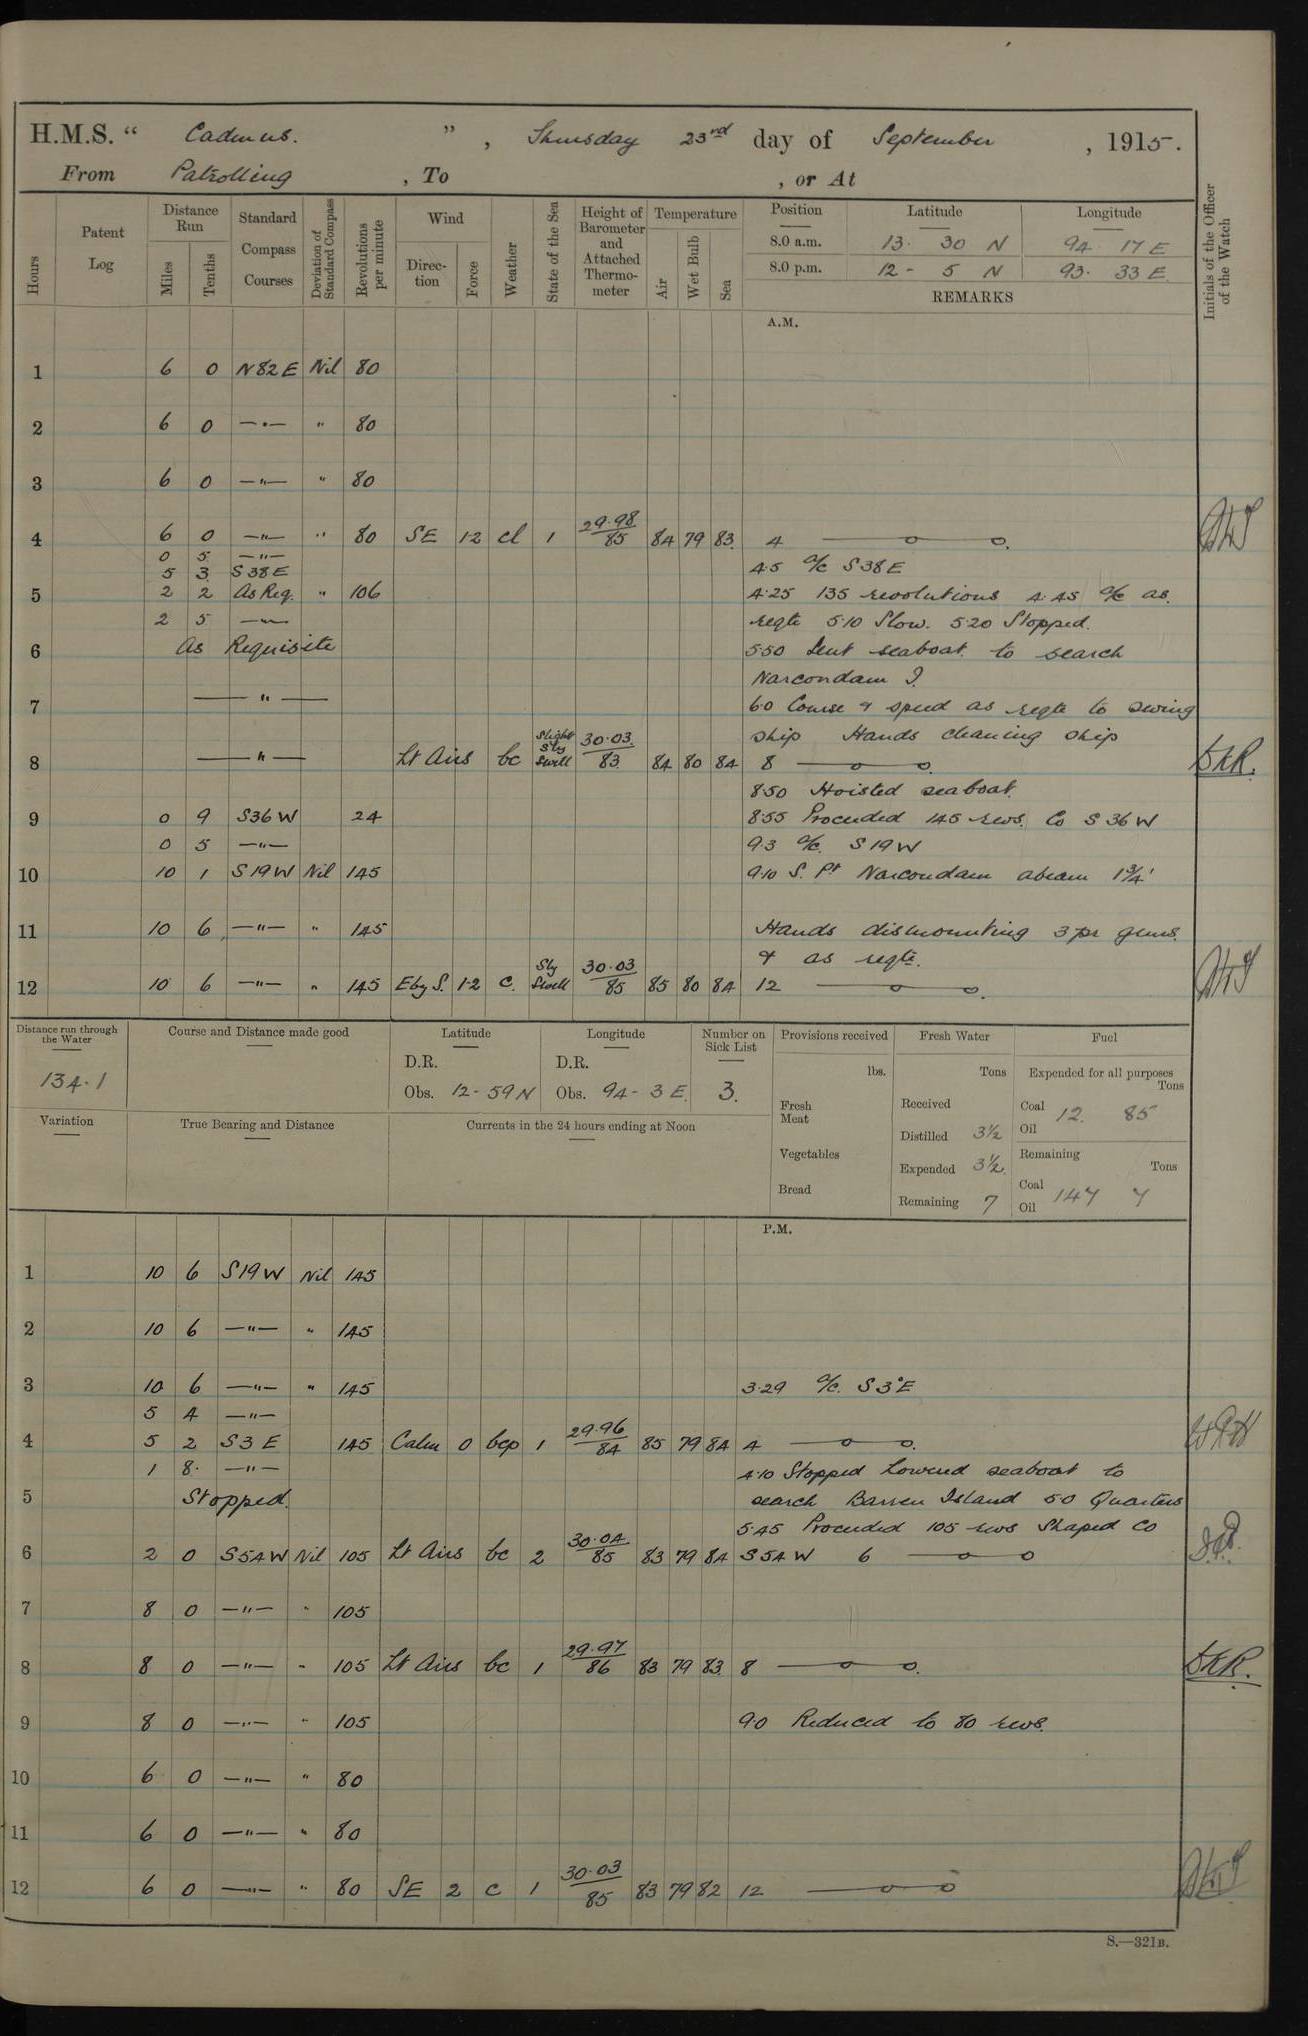 H.M.S. “ Cadmus. ” , Thursday 23rd day of September , 1915.
From Patrolling , To , or At
Hours
Patent Log
Distance Run
Miles
Tenths
Standard Compass Courses
Deviation of Standard Compass
Revolutions per minute
Wind
Direction
Force
Weather
State of the Sea
Height of Barometer and Attached Thermometer
Temperature
Air
Wet Bulb
Sea
Position Latitude Longitude
8.0 a.m. 13. 30 N 94. 17 E
8.0 p.m. 12 - 5 N 93. 33 E.
REMARKS
Initials of the Officer of the Watch
A.M.
1 6 0 N 82 E Nil 80
2 6 0 —"— " 80
3 6 0 —"— " 80
4 6 0 —"— " 80 SE 1·2 cl 1 29·98 / 85 84 79 83. 4 —o—o.
0 5 —"—
5 3 S 38 E 4·5 a/c S 38 E
5 2 2 As Req. " 106 4·25 135 revolutions 4·45 a/c as.
2 5 —"— reqte 5·10 Slow. 5·20 Stopped.
6 As Requisite 5·50 Sent seaboat to search
Narcondam I.
7 —"— 6·0 Course & speed as reqte to swing
ship Hands cleaning ship
8 —"— Lt Airs bc Slight Sly Swell 30·03. / 83 84 80 84 8 —o—o. SKR.
8·50 Hoisted seaboat.
9 0 9 S 36 W 24 8·55 Proceeded 145 revs. Co S 36 W
0 5 —"— 9·3 a/c. S 19 W
10 10 1 S 19 W Nil 145 9·10 S. Pt Narcondam abeam 1¾'
11 10 6 —"— " 145 Hands dismounting 3 pr guns.
& as reqte.
12 10 6 —"— " 145 E by S. 1·2 c. Sly Swell 30·03 / 85 85 80 84 12 —o—o.
Distance run through the Water
134·1
Course and Distance made good
Latitude
D.R.
Obs. 12 - 59 N
Longitude
D.R.
Obs. 94 - 3 E.
Number on Sick List
3.
Provisions received
lbs.
Fresh Meat
Vegetables
Bread
Fresh Water
Tons
Received
Distilled 3½
Expended 3½.
Remaining 7
Fuel
Expended for all purposes
Tons
Coal
Oil 12. 85
Remaining
Tons
Coal
Oil 147 7
Variation
True Bearing and Distance
Currents in the 24 hours ending at Noon
P.M.
1 10 6 S 19 W Nil 145
2 10 6 —"— " 145
3 10 6 —"— " 145 3·29 a/c. S 3°E
5 4 —"—
4 5 2 S 3 E 145 Calm 0 bcp 1 29·96 / 84 85 79 84 4 —o—o.
1 8. —"— 4·10 Stopped Lowered seaboat to
5 Stopped. search Barren Island 5·0 Quarters
5·45 Proceeded 105 revs Shaped Co
6 2 0 S 54 W Nil 105 Lt Airs bc 2 30·04 / 85 83 79 84 S 54 W 6 —o—o
7 8 0 —"— " 105
8 8 0 —"— " 105 Lt Airs bc 1 29·97 / 86 83 79 83. 8 —o—o. SKR.
9 8 0 —"— " 105 9·0 Reduced to 80 revs.
10 6 0 —"— " 80
11 6 0 —"— " 80
12 6 0 —"— " 80 SE 2 c 1 30·03 / 85 83 79 82 12 —o—o
S.—321B.